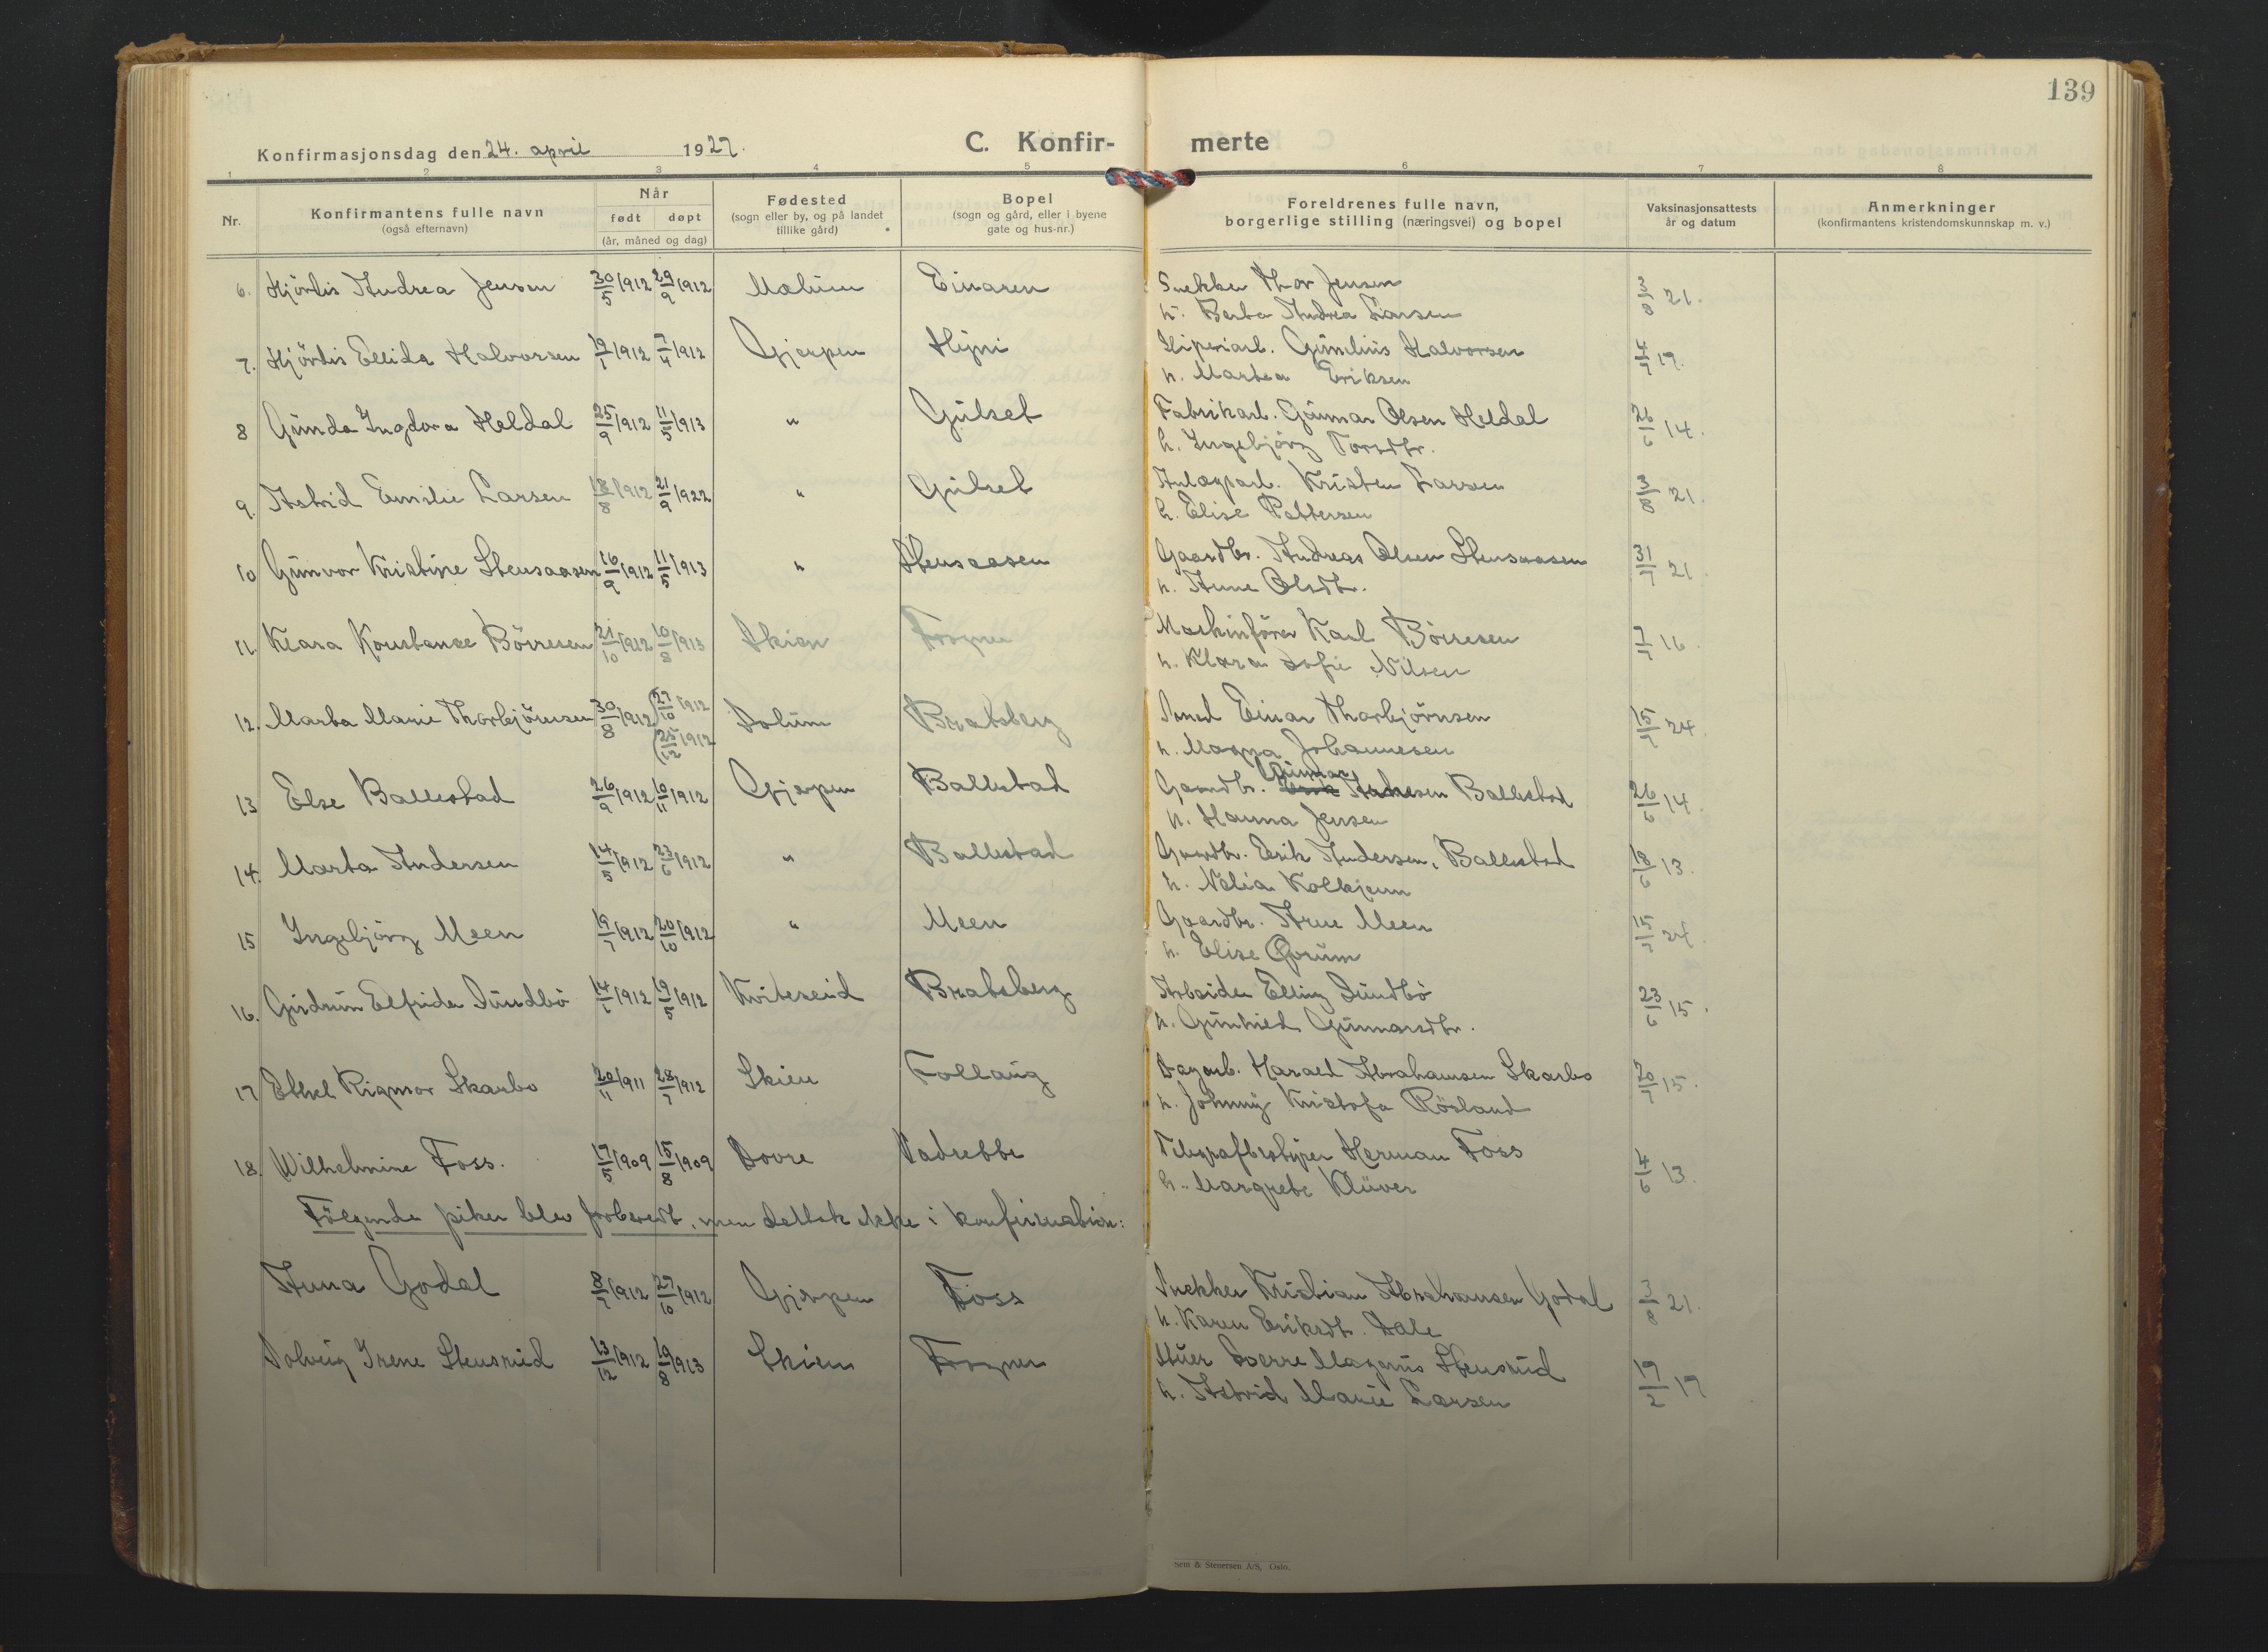 139
Konfirmasjonsdag den 24. april 1927.
C. Konfir- merte
1 2 3 4 5 6 7 8
Nr.
Konfirmantens fulle navn
(også efternavn)
Når
født døpt
(år, måned og dag)
Fødested
(sogn eller by, og på landet
tillike gård)
Bopel
(sogn og gård, eller i byene
gate og hus-nr.)
Foreldrenes fulle navn,
borgerlige stilling (næringsvei) og bopel
Vaksinasjonsattests
år og datum
Anmerkninger
(konfirmantens kristendomskunnskap m. v.)
6. Hjördis Andrea Jensen 30/5 1912 29/9 1912 Einaren Snekker Thor Jensen 3/8 21.
h. Berta Andrea Larsen
7. Hjördis Ellida Halvorsen 19/1 1912 7/4 1912 Gjerpen Hyni Sliperiarb. Halvorsen 4/7 19.
h. Martea Eriksen
8 Gunda Ingdora Heldal 25/9 1912 11/5 1913 " Gulset Fabrikarb. Gunnar Olsen Heldal 26/6 14.
h. Ingebjörg Torsdtr.
9. Astrid Emilie Larsen 18/8 1912 21/9 1922 " Gulset Anlægsarb. Kristen Larsen 3/8 21.
h. Elise Pettersen
10 Gunvor Kristine Stensaasen 16/9 1912 11/5 1913 " Stensaasen Gaardbr. Andreas Olsen Stensaasen 31/7 21
h. Anne Olsdt.
11. Klara Konstanse Börresen 21/10 1912 10/8 1913 Skien Frogner Maskinförer Karl Börresen 7/7 16.
h. Klara Sofie Nilsen
12. Marta Marie Thorbjörnsen 30/8 1912 (27/10 1912 Solum Bratsberg Smed Einar Thorbjörnsen 15/7 24.
(25/12 1912
h. Magna Johannesen
Gunnar
13 Else Ballestad 26/9 1912 10/11 1912 Gjerpen Ballestad Gaardbr. Erik Ballestad 26/6 14.
h. Hanna Jensen
14. Marta Andersen 14/5 1912 23/6 1912 " Ballestad Gaardbr. Erik Andersen, Ballestad 18/6 13.
h. Nelia Kolkjenn
15 Ingebjörg Meen 19/7 1912 20/10 1912 " Meen Gaardbr. Arne Meen 15/7 24.
h. Elise
16. Gudrun Elfrida Sundbö 14/1 1912 19/5 1912 Kviteseid Bratsberg Arbeider Elling Sundbö 23/6 15.
h. Gunhild Gunnarsdtr.
17 Ethel Rigmor Skarbo 20/11 1911 28/7 1912 Skien Follaug Dagarb. Harald Abrahamsen Skarbo 20/7 15.
h. Johnny Kristofa Rösland
18. Wilhelmine Foss. 17/5 1909 15/8 1909 Dovre Vadrette Telegrafbestyrer Herman Foss 4/6 13.
h. Margrete Klüver
Fölgende piker blev forberedt, men deltok ikke i konfirmation:
Anna Godal 8/7 1912 27/10 1912 Gjerpen Foss Snekker Kristian Abrahamsen Godal 3/8 21.
h. Karen Eriksdt. Dale
Solveig Irene Stensrud 13/12 1912 10/8 1913 Skien Frogner Stuer Sverre Magnus Stensrud 19/2 17
h. Astrid Marie Larsen
Sem & Stenersen A/S, Oslo.